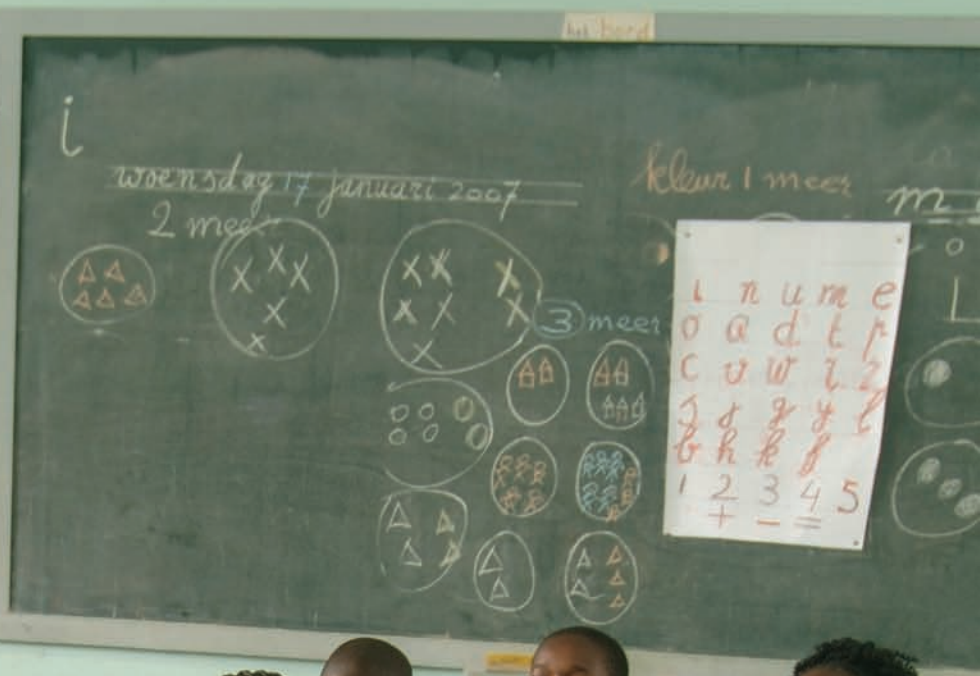 het bord
i
woensdag 17 januari 2007
2 meer
3 meer
kleur 1 meer
m
i n u m e
o a d t p
c v w r z
j s g y l
b h k f
1 2 3 4 5
+ - =
L